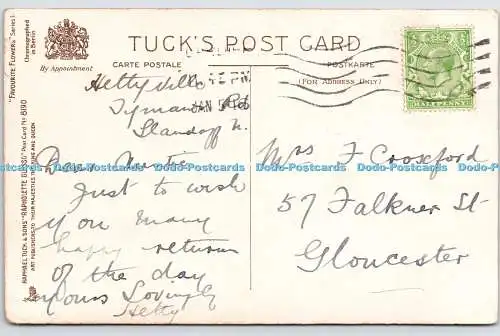 TUCK'S POST CARD
CARTE POSTALE
POSTKARTE
(FOR ADDRESS ONLY)
By Appointment
"FAVOURITE FLOWERS" Series I
Chromographed in Berlin
RAPHAEL TUCK & SONS' "RAPHOLETTE GLOSSO" Post Card No 8190
ART PUBLISHERS TO THEIR MAJESTIES THE KING AND QUEEN
HALFPENNY
PM
JAN
Hettyville
Llandaff N.
Dear Auntie
Just to wish
you many
happy return
of the day
yours Lovingly
Hetty
Mrs F Croxford
57 Falkner St
Gloucester
Dodo-Postcards Dodo-Postcards Dodo-Postcards Dodo-Postcards Dodo-Postcards